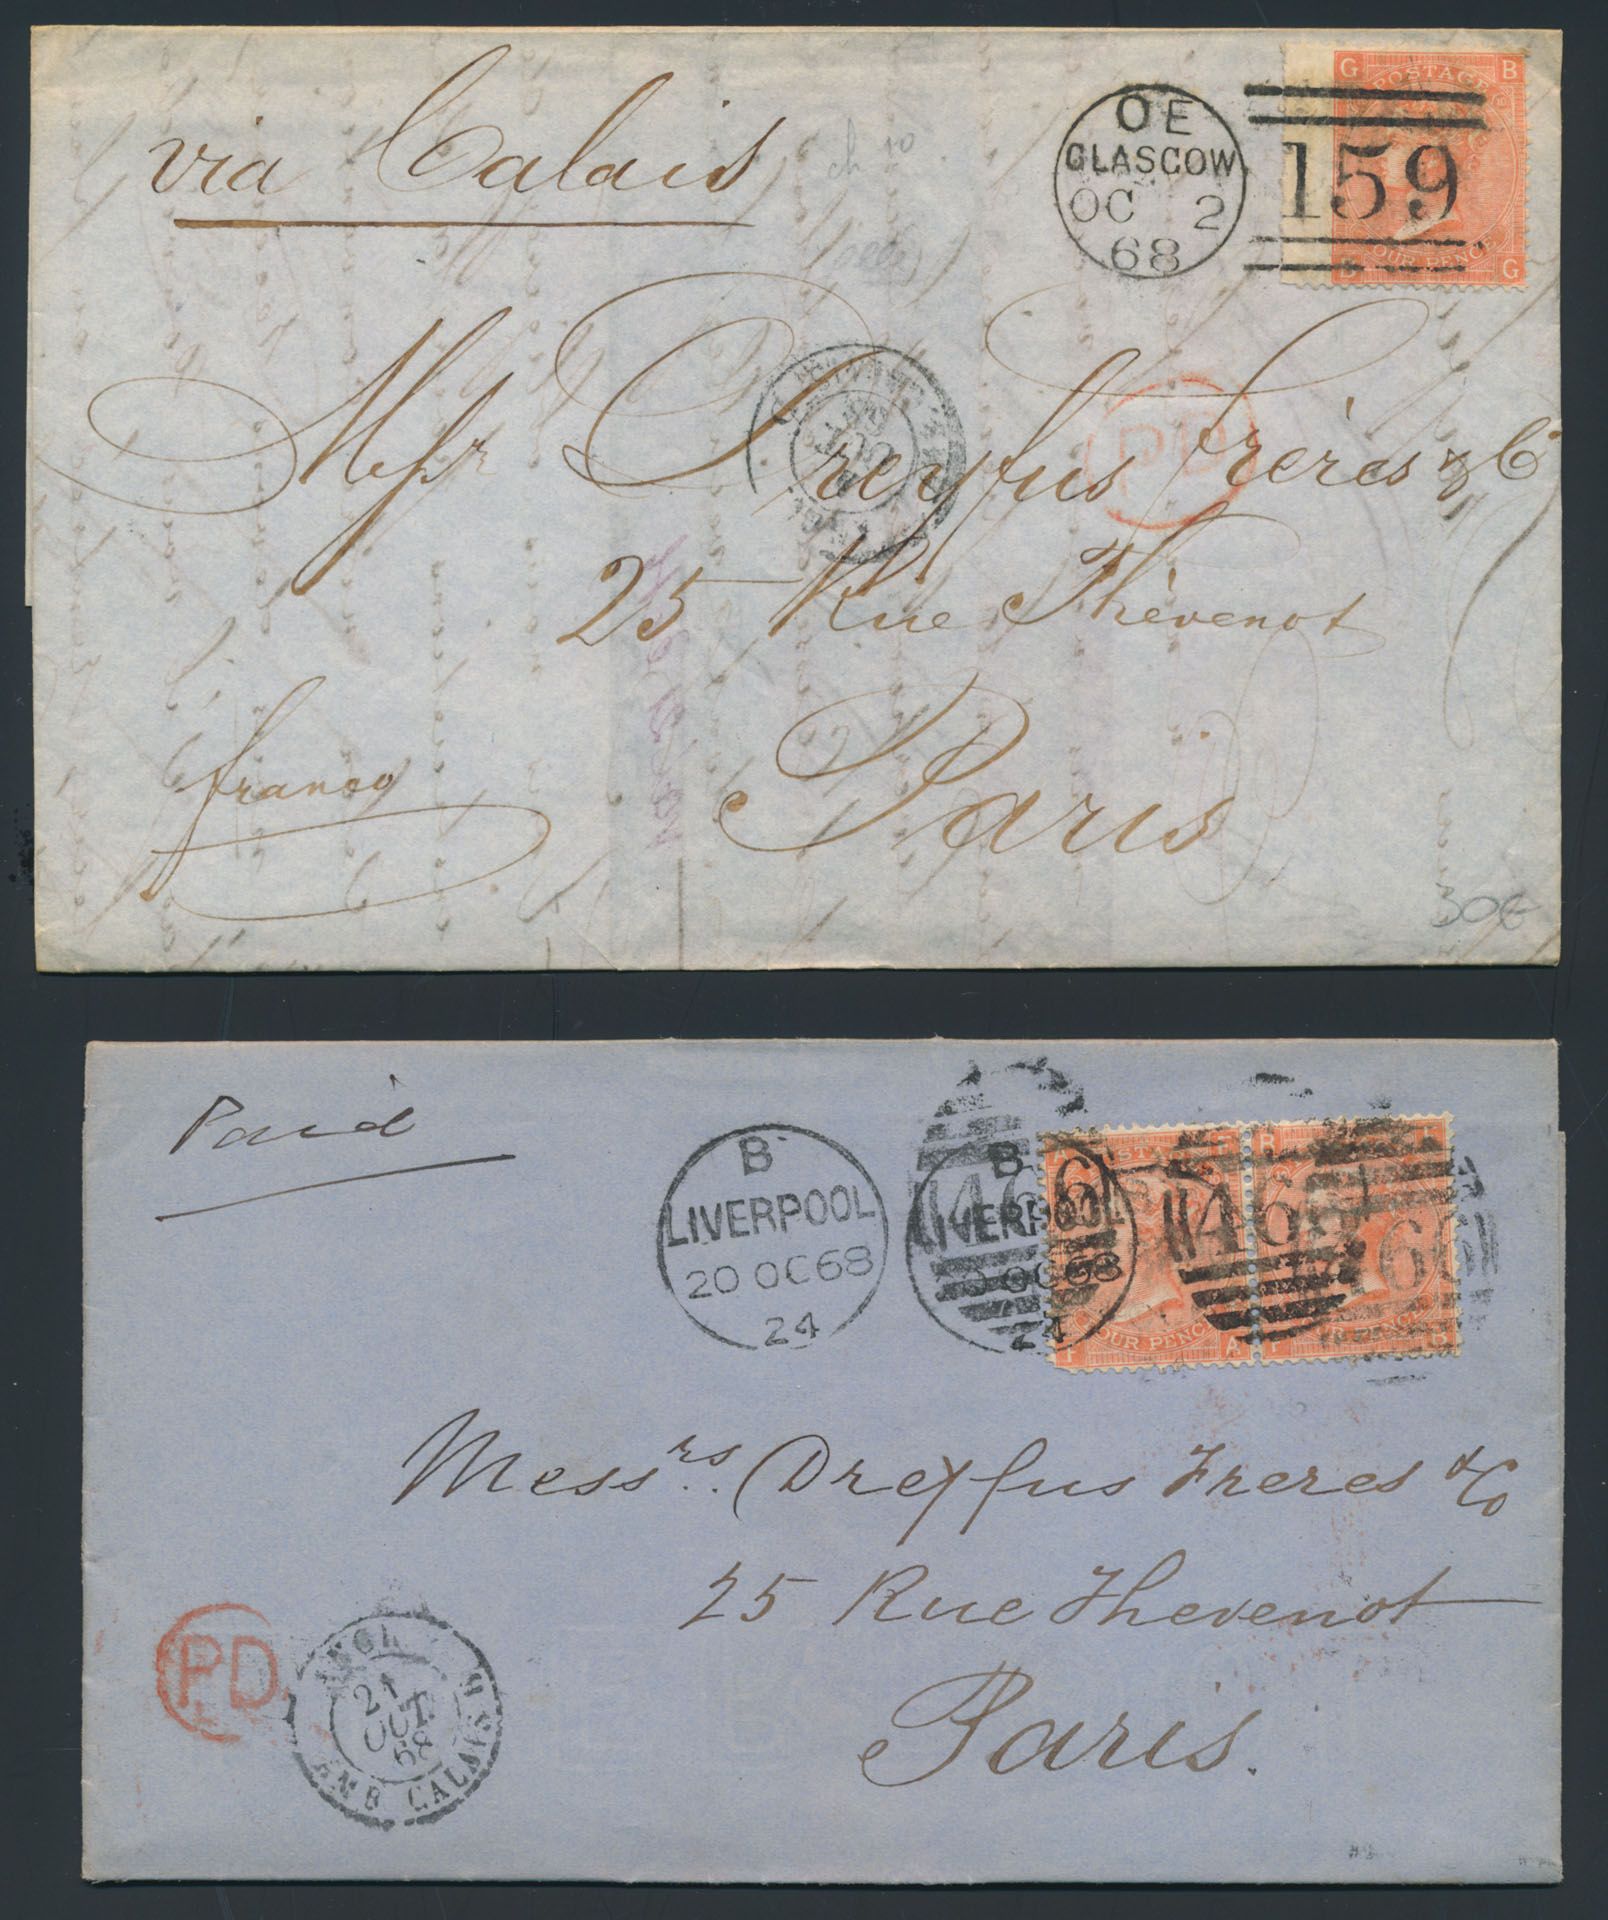 via Calais
OE
GLASGOW
OC 2
68
159
G B
POSTAGE
FOUR PENCE
G
PD
Messr Dreyfus Frères & Co
25 Rue Thévenot
Paris
franco
30€
Paid
B
LIVERPOOL
20 OC 68
24
B
LIVERPOOL
20 OC 68
24
466
466
66
FOUR PENCE
F A F B
Messrs. Dreyfus Freres & Co
25 Rue Thevenot
Paris.
PD
ANGL
21
OCT.
68
AMB CALAIS